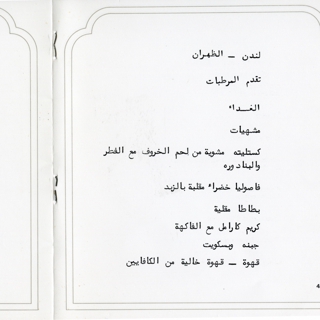 لندن – الظهران
تقدم المرطبات
الغـداء
مشهيات
كستليته مشوية من لحم الخروف مع الفطر
والبنادوره
فاصوليا خضراء مقلية بالزبد
بطاطا مقلية
كريم كاراملي مع الفاكهة
جبنه وبسكويت
قهوة – قهوة خالية من الكافايين
4